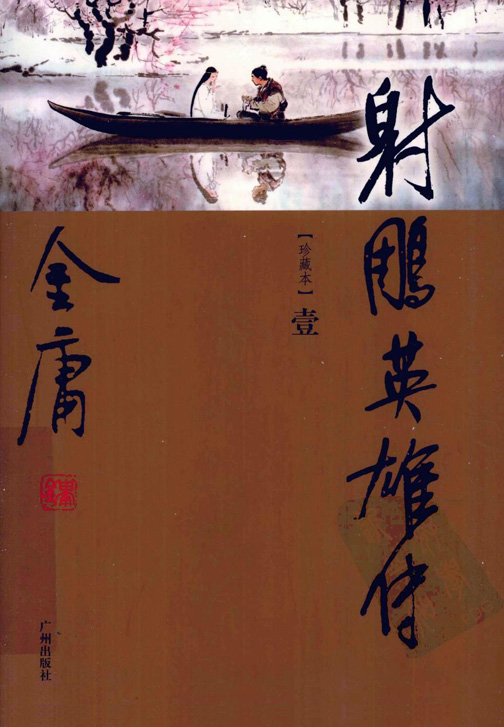 射鵰英雄传
【珍藏本】
壹
金庸
广州出版社